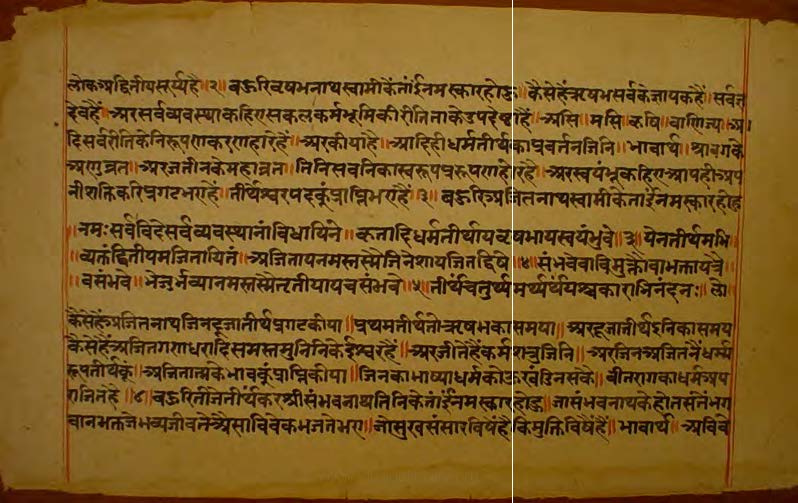 लोकअद्वितीयसूर्य्यहै ॥२॥ बहुरिवृषभनाथस्वामीकेंतांईनमस्कारहोहु ॥ कैसेहैंऋषभसर्वकेज्ञायकहैं ॥ सर्वज्ञ
देवहैं ॥ अरसर्वव्यवस्थाकहिएसकलकर्मभूमिकीरीतिताकेउपदेष्टाहैं ॥ असि ॥ मसि ॥ कृषि ॥ वाणिज्य ॥ आ
दिसर्वरीतिकेनिरूपणकरणहारेहैं ॥ अरकीयाहै ॥ आदिहीधर्मतीर्थकाप्रवर्तनजिनि ॥ भावार्थ ॥ श्रावगके
अणुव्रत ॥ अरजतीनकेमहाव्रत ॥ तिनिसबनिकास्वरूपप्ररूपणहारेहै ॥ अरस्वयंभूकहिएआपहीअप
नीशक्तिकरिप्रगटभएहैं ॥ तीर्थेश्वरपदकूंप्राप्तिभएहैं ॥३॥ बहुरिअजितनाथस्वामीकेतांईनमस्कारहोहु
॥ नमःसर्वविदेसर्वव्यवस्थानांविधायिने ॥ कृतादिधर्मतीर्थायवृषभायस्वयंभुवे ॥३॥ येनतीर्थमभि
॥ व्यक्तंद्वितीयमजितायितं ॥ अजितायनमस्तस्मैजिनेशायजितद्विषे ॥४॥ संभवेवाविमुक्तौवाभक्तायत्रै
॥ वसंभवे ॥ भेजुर्भव्यानमस्तस्मैतृतीयायचसंभवे ॥५॥ तीर्थंचतुर्थमर्थ्यर्थंयश्चकाराभिनंदनः ॥ लो
कैसेहैंअजितनाथजिनदूजातीर्थप्रगटकीया ॥ प्रथमतीर्थतोऋषभकासमया ॥ अरदूजातीर्थइनिकासमय
कैसेहैंअजितगणधरादिसमस्तमुनिनिकेईश्वरहैं ॥ अरजीतेहैंकर्मशत्रुजिनि ॥ अरजिनअजितनैंधर्म्म
रूपतीर्थकूं ॥ अजितात्मकेभावकूंप्राप्तिकीया ॥ जिनकाभाष्याधर्मकोऊखंडिनसकै ॥ वीतरागकाधर्मअप
राजितहै ॥४॥ बहुरितीजेतीर्थंकरश्रीसंभवनाथतिनिकेतांईनमस्कारहोहु ॥ जासंभवनाथकेहोतसंतैंभग
वानभक्तजेभव्यजीवतेअैसाविवेकभजतेभए ॥ जोसुखसंसारविषैंहैकिमुक्तिविषैंहै ॥ भावार्थ ॥ अविवे